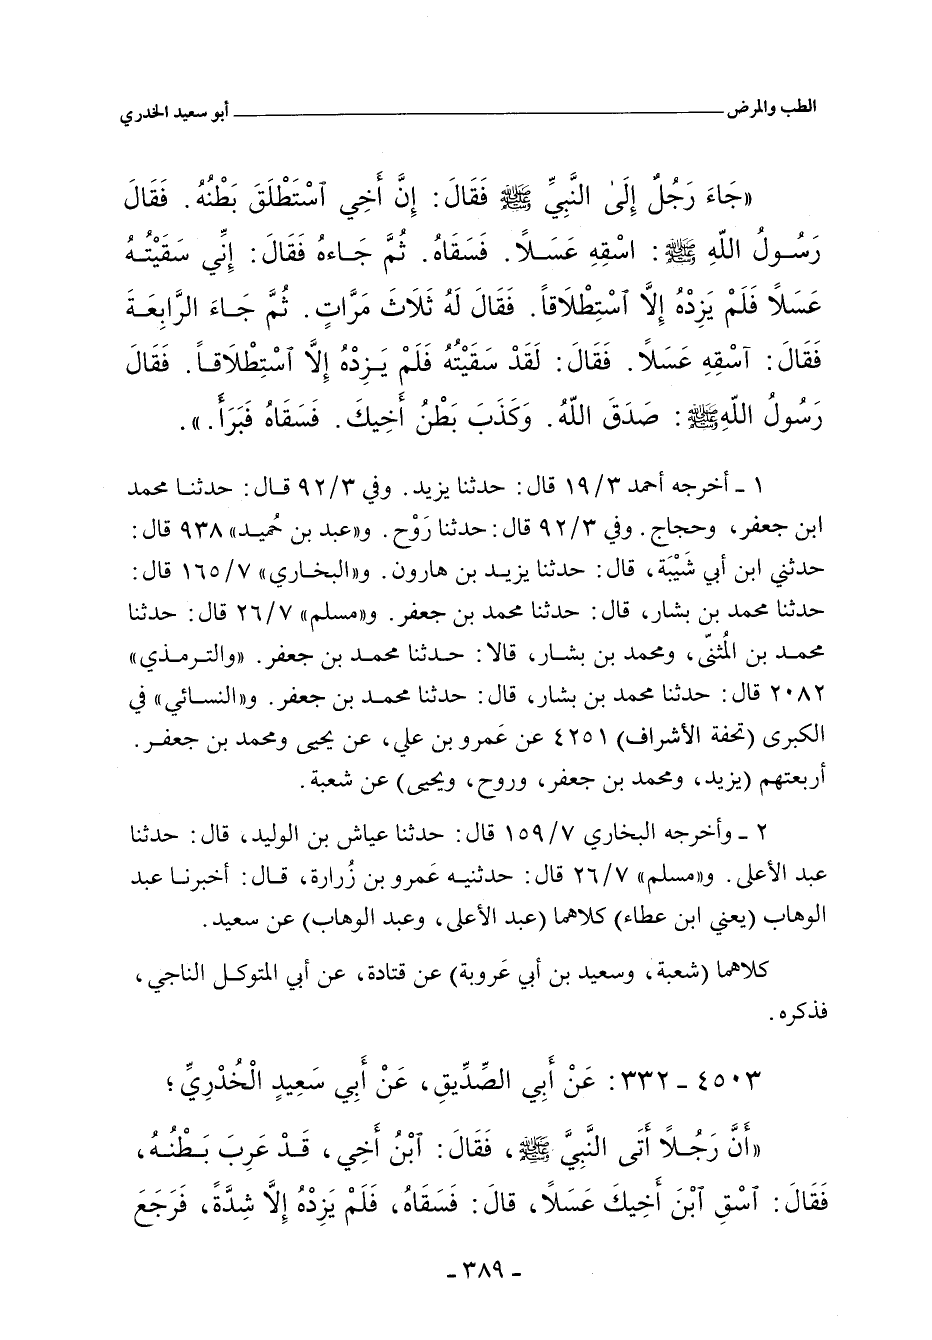 الطب والمرض ــــــــــــــــــــــــــــــــ أبو سعيد الخدري
«جَاءَ رَجُلٌ إِلَىٰ النَّبِيِّ ﷺ فَقَالَ: إِنَّ أَخِي ٱسْتَطْلَقَ بَطْنُهُ. فَقَالَ
رَسُولُ اللّٰهِ ﷺ: اسْقِهِ عَسَلًا. فَسَقَاهُ. ثُمَّ جَاءهُ فَقَالَ: إِنِّي سَقَيْتُهُ
عَسَلًا فَلَمْ يَزِدْهُ إِلَّا ٱسْتِطْلَاقاً. فَقَالَ لَهُ ثَلَاثَ مَرَّاتٍ. ثُمَّ جَاءَ الرَّابِعَةَ
فَقَالَ: ٱسْقِهِ عَسَلًا. فَقَالَ: لَقَدْ سَقَيْتُهُ فَلَمْ يَزِدْهُ إِلَّا ٱسْتِطْلَاقاً. فَقَالَ
رَسُولُ اللّٰهِ ﷺ: صَدَقَ اللّٰهُ. وَكَذَبَ بَطْنُ أَخِيكَ. فَسَقَاهُ فَبَرَأَ.».
١ ـ أخرجه أحمد ١٩/٣ قال: حدثنا يزيد. وفي ٩٢/٣ قال: حدثنا محمد
ابن جعفر، وحجاج. وفي ٩٢/٣ قال: حدثنا رَوْح. و«عبد بن حُميد» ٩٣٨ قال:
حدثني ابن أبي شَيْبَة، قال: حدثنا يزيد بن هارون. و«البخاري» ١٦٥/٧ قال:
حدثنا محمد بن بشار، قال: حدثنا محمد بن جعفر. و«مسلم» ٢٦/٧ قال: حدثنا
محمد بن المُثنّى، ومحمد بن بشار، قالا: حدثنا محمد بن جعفر. «والترمذي»
٢٠٨٢ قال: حدثنا محمد بن بشار، قال: حدثنا محمد بن جعفر. و«النسائي» في
الكبرى (تحفة الأشراف) ٤٢٥١ عن عَمرو بن علي، عن يحيى ومحمد بن جعفر.
أربعتهم (يزيد، ومحمد بن جعفر، وروح، ويحيى) عن شعبة.
٢ ـ وأخرجه البخاري ١٥٩/٧ قال: حدثنا عياش بن الوليد، قال: حدثنا
عبد الأعلى. و«مسلم» ٢٦/٧ قال: حدثنيه عَمرو بن زُرارة، قال: أخبرنا عبد
الوهاب (يعني ابن عطاء) كلاهما (عبد الأعلى، وعبد الوهاب) عن سعيد.
كلاهما (شعبة، وسعيد بن أبي عَروبة) عن قتادة، عن أبي المتوكل الناجي،
فذكره.
٤٥٠٣ ـ ٣٣٢: عَنْ أَبِي الصِّدِّيقِ، عَنْ أَبِي سَعِيدٍ الْخُدْرِيِّ؛
«أَنَّ رَجُلًا أَتَى النَّبِيَّ ﷺ، فَقَالَ: ٱبْنُ أَخِي، قَدْ عَرِبَ بَطْنُهُ،
فَقَالَ: ٱسْقِ ٱبْنَ أَخِيكَ عَسَلًا، قال: فَسَقَاهُ، فَلَمْ يَزِدْهُ إِلَّا شِدَّةً، فَرَجَعَ
ـ ٣٨٩ ـ